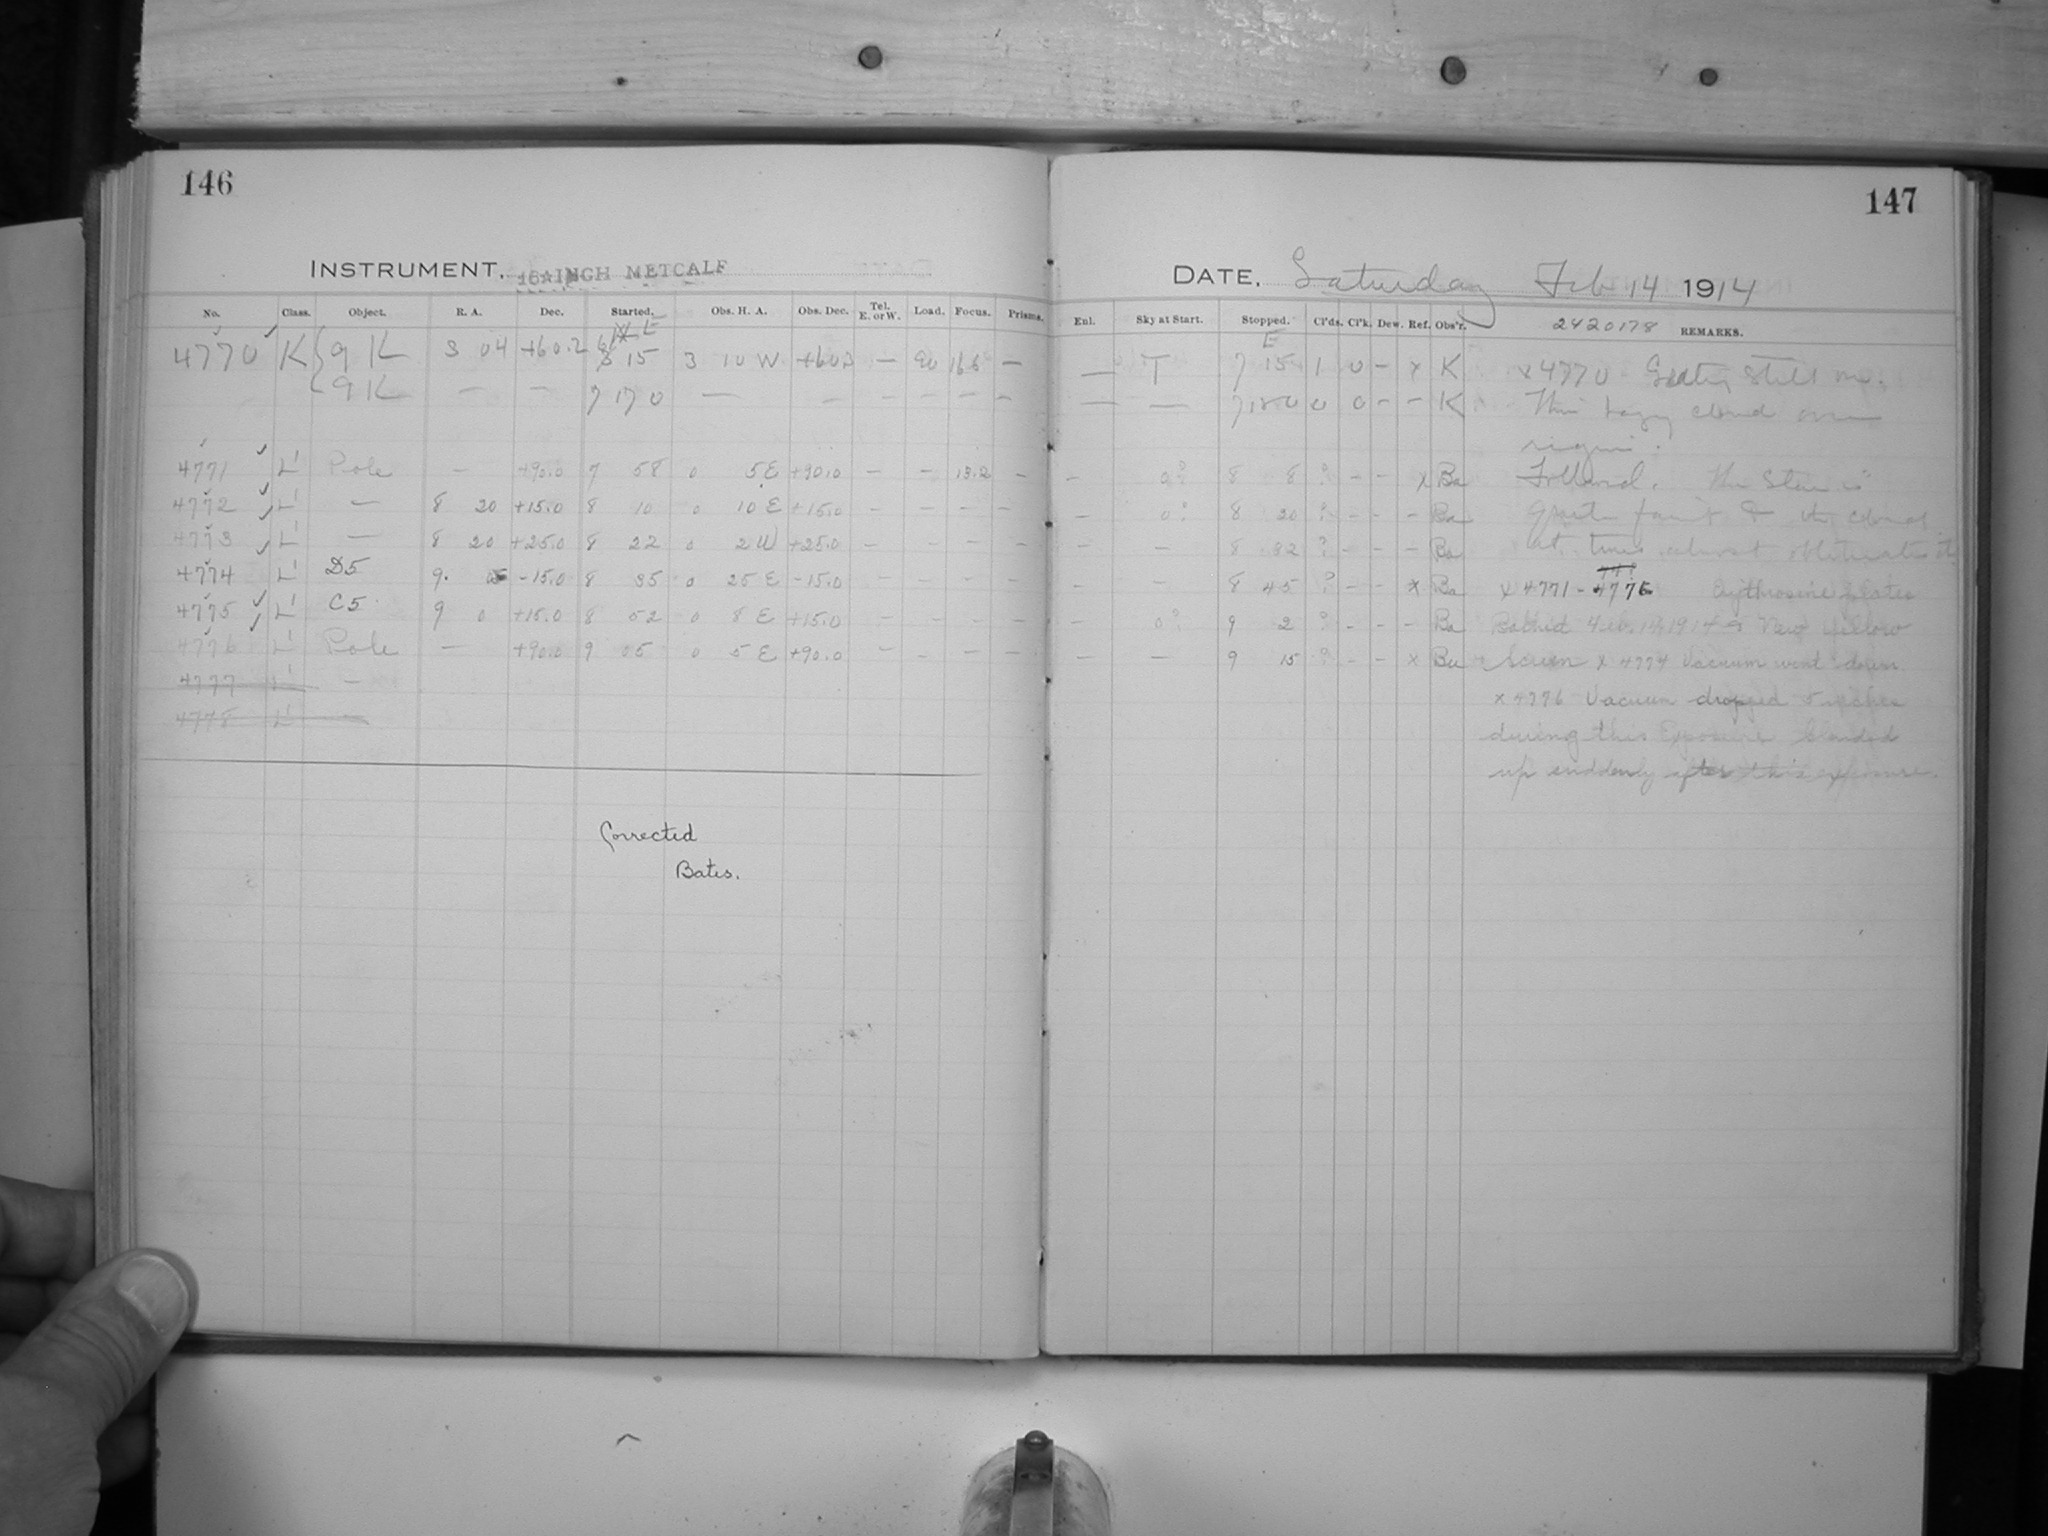 146
147
INSTRUMENT. 16 INCH METCALF
DATE. Saturday Feb 14 1914
No. Class. Object. R. A. Dec. Started. Obs. H. A. Obs. Dec. Tel. E. or W. Load. Focus. Prisms.
Enl. Sky at Start. Stopped. Cl'ds. Cl'k. Dew. Ref. Obs'r. 2420178 REMARKS.
4770 K 9 K 3 04 +60.2 15 3 10 W — — — T 7 15 1 0 – x K x 4770 still on.
9 K — — 7 17 0 — — – – – – — — 0 0 – – K cloud over
region.
4771 L' Pole — +90.0 7 58 0 5 E +90.0 – – 13.2 – – 0? 8 8 ? – – x Ba Followed. The Star is
4772 L' — 8 20 +15.0 8 10 0 10 E +15.0 – – – – – 0? 8 20 ? – – – Ba quite faint & the clouds
4773 L' — 8 20 +25.0 8 22 0 2 W +25.0 – – – – – – 8 32 ? – – – Ba at times almost obliterate it
4774 L' D5 9 -15.0 8 35 0 25 E -15.0 – – – – – – 8 45 ? – – x Ba x 4771 - 4776 Erythrosine Plates
4775 L' C5 9 0 +15.0 8 52 0 8 E +15.0 – – – – – 0? 9 2 ? – – – Ba Bathed Feb. 14, 1914 New Yellow
4776 L' Pole — +90.0 9 05 0 5 E +90.0 – – – – – — 9 15 ? – – x Ba Screen x 4774 Vacuum went down
4777 L' — x 4776 Vacuum dropped 5 inches
4778 L' — during this Exposure clouded
up suddenly after this exposure.
Corrected
Bates.